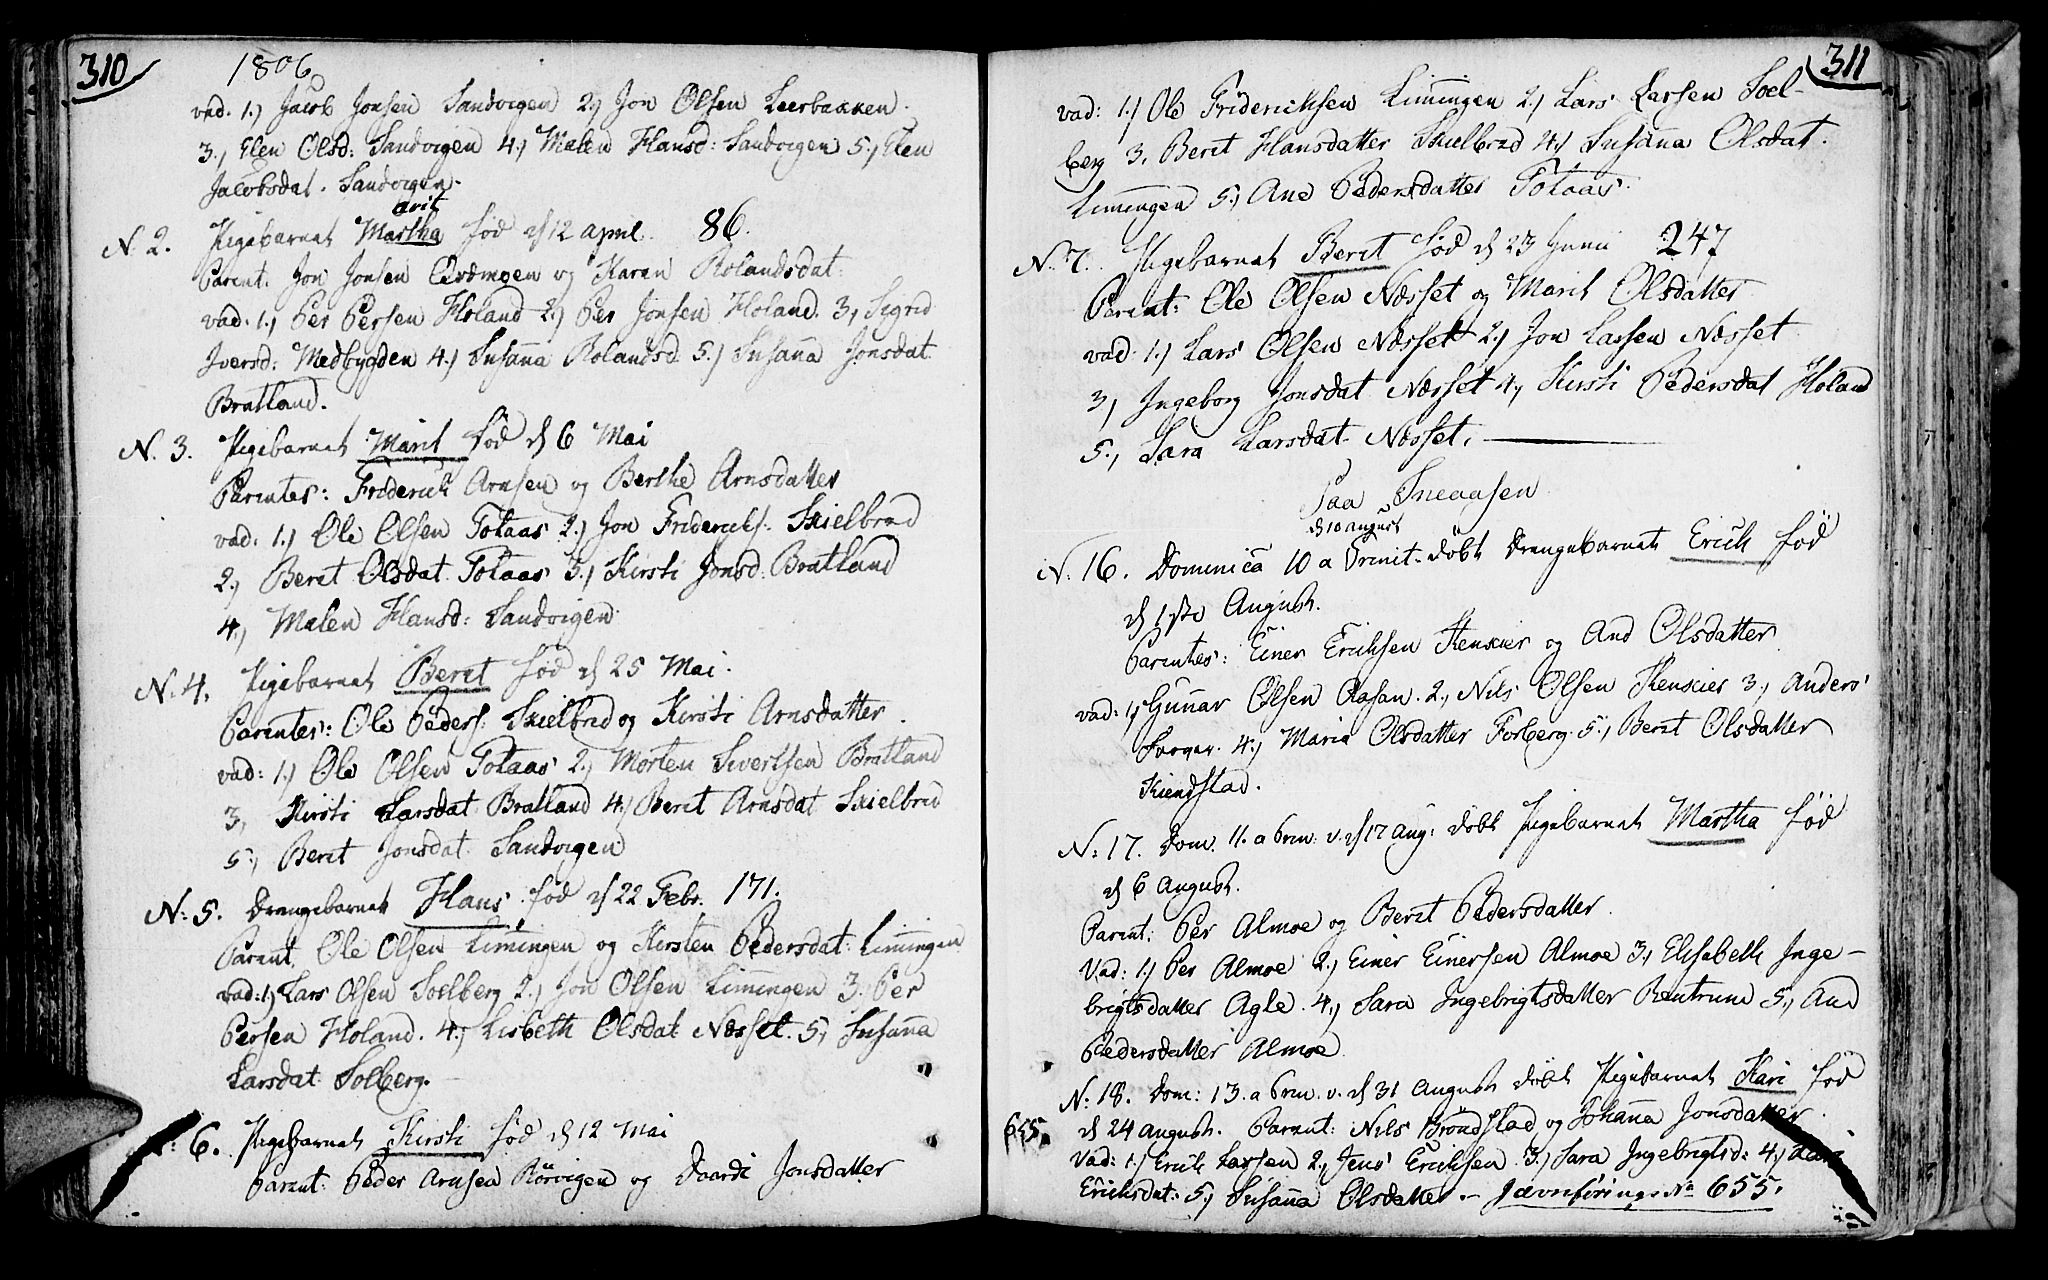 310
1806
vad. 1.) Jacob Jonsen Sandvigen 2.) Jon Olsen Leerbakken.
3., Elen Olsd: Sandvigen 4.) Malen Hansd: Sandvigen 5., Elen
Jacobsdat. Sandvigen.
arit
N. 2. Pigebarnet Martha fød d 12 April. 86.
Parent. Jon Jonsen Qvdmoen og Karen Rolandsdat:
vad. 1., Per Persen Holand 2.) Per Jonsen Holand. 3, Sigrid
Iversd: Medbygden 4.) Susana Rolandsd. 5.) Susana Jonsdat
Bratland.
N. 3. Pigebarnet Marit fød d 6 Mai
Parentes: Friderich Arnsen og Berthe Arnsdatter
vad: 1.) Ole Olsen Totaas 2.) Jon Fridericks. Skielbred
2.) Beret Olsdat. Totaas 3.) Kirsti Jonsd: Bratland
4., Malen Hansd: Sandvigen
N. 4. Pigebarnet Beret fød d 25 Mai.
Parentes: Ole Peders. Skielbred og Kirsti Arnsdatter
vad: 1.) Ole Olsen Totaas 2., Morten Sivertsen Bratland
3, Kirsti Larsdat. Bratland 4.) Beret Arnsdat Skielbred
5., Beret Jonsdat. Sandvigen
N. 5. Drengebarnet Hans fød d 22 Febr. 171.
Parent. Ole Olsen Limingen og Kirsten Pedersdat: Limingen
vad: 1.) Lars Olsen Soelberg 2.) Jon Olsen Limingen 3. Per
Persen Holand. 4., Lisbeth Olsdat Nøsset. 5, Susana
Larsdat. Solberg.
N. 6. Pigebarnet Kirsti fød d 12 Mai
Parent: Peder Arnsen Rörvigen og Daardi Jonsdatter
311
vad: 1.) Ole Fridericksen Limingen 2.) Lars Larsen Soel-
berg 3. Beret Hansdatter Skielbred 4.) Susana Olsdat.
Limingen 5., Ane Pedersdatter Totaas.
N. 7. Pigebarnet Beret fød d 23 Junii 247
Parent: Ole Olsen Nøsset og Marit Olsdatter
vad: 1.) Lars Olsen Nøsset 2.) Jon Larsen Nøsset
3, Ingeborg Jonsdat Nøsset 4., Kirsti Pedersdat Holand
5., Sara Larsdat. Nøsset.
Paa Sneaasen
d 10 August
N. 16. Dominica 10 a Trinit. døbt Drengebarnet Erich fød
d 1ste August.
Parentes: Einer Erichsen Kenseier og And Olsdatter
vad: 1, Gunar Olsen Aasan. 2., Nils Olsen Kenseier 3., Anders
4., Maria Olsdatter Forberg. 5., Beret Olsdatter
Kiendstad.
N: 17. Dom. 11. a Trin. v. d 17 Aug: døbt Pigebarnet Martha fød
d 6 August.
Parent: Per Almoe og Beret Pedersdatter.
Vad: 1.) Per Almoe 2.) Einer Einersen Almoe 3., Elisabeth Inge-
brigtsdatter Agle. 4., Sara Ingebrigtsdatter Bentrum 5., And
Pedersdatter Almoe.
N: 18. Dom: 13. a Trin. v. d 31 August døbt Pigebarnet Kari fød
655. d 24 August. Parent: Nils Brondstad og Johanna Jonsdatter.
Vad: 1.) Erich Larsen 2., Jens Erichsen 3.) Sara Ingebrigtsd: 4.)
Erichsdat: 5.) Susana Olsdatter. - Jævnførings No 655.